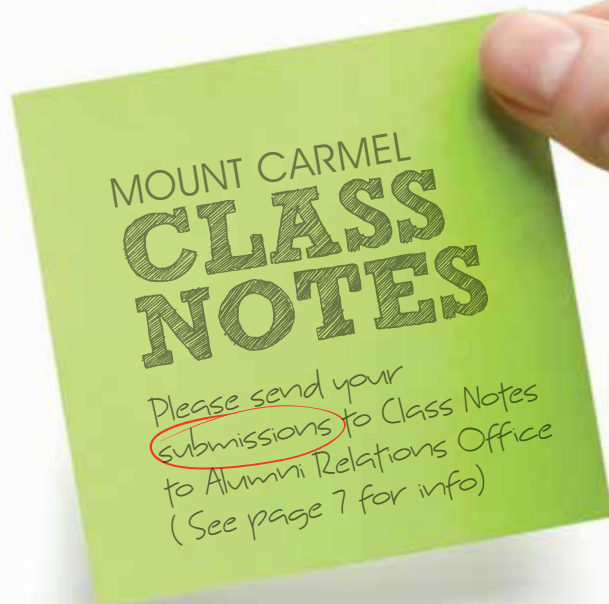 MOUNT CARMEL
CLASS
NOTES
Please send your
submissions to Class Notes
to Alumni Relations Office
(See page 7 for info)